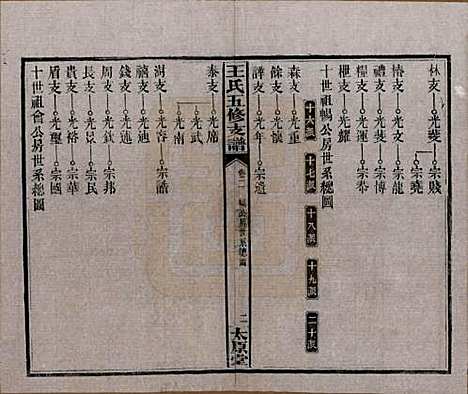 林支○光斐○宗賤
○宗堯
椿支○光文○宗龍
禮支○光斐○宗博
糧支○光運○宗奉
枻支○光耀
十世祖暢公房世系總圖
十六派 十七派 十八派 十九派 二十派
森支○光重
餘支○光懷
譁支○光年○宗道
王氏五修支譜
卷二 暢公房世系總圖
二
太原堂
泰支○光席
○光武
○光南
澍支○光斐○宗諧
禧支○光迪
錢支○光遠
周支○光欽○宗邦
長支○光景○宗民
貴支○光裕○宗華
眉支○光璽○宗國
十世祖會公房世系總圖